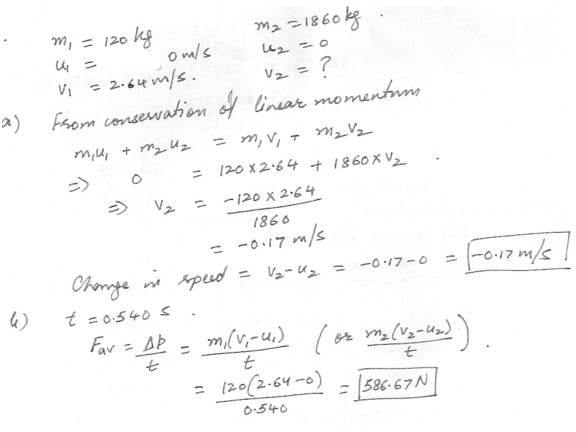 m₁ = 120 kg m₂ = 1860 kg.
u₁ = 0 m/s u₂ = 0
v₁ = 2.64 m/s. v₂ = ?
a) From conservation of linear momentum
m₁u₁ + m₂u₂ = m₁v₁ + m₂v₂
=> 0 = 120 × 2.64 + 1860 × v₂ .
=> v₂ = -120 × 2.64 / 1860
= -0.17 m/s
Change in speed = v₂ - u₂ = -0.17 - 0 = -0.17 m/s
b) t = 0.540 s .
Fav = Δp / t = m₁(v₁-u₁) / t (or m₂(v₂-u₂) / t) .
= 120(2.64-0) / 0.540 = 586.67 N